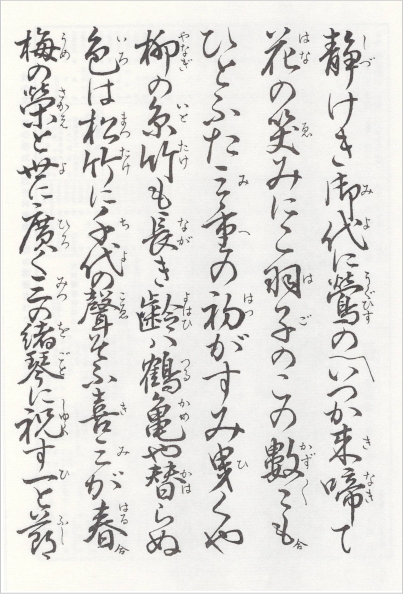 静けき御代に鶯の〽いつか来啼て
花の笑みにこ羽子のこの數〻も合
ひとふた三重の初がすみ曳くや
柳の糸竹も長き齢ハ鶴亀や替らぬ
色は松竹に千代の聲そふ喜三が春合
梅の榮と世に廣く三の緒琴に祝す一と節